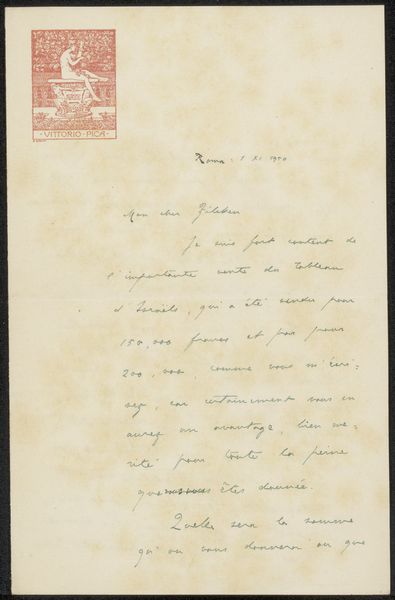 - VITTORIO - PICA -
Roma: 1 XI 1920
Mon cher Zilcken
Je suis fort content de
l'importante vente du tableau
d'Israëls, qui a été vendu pour
150,000 francs et pas pour
200,000, comme vous m'écri-
sez, car certainement vous en
aurez un avantage, bien mé-
rité pour toute la peine
que vous êtes donnée.
Quelle sera la somme
qu'on vous donnera ou que